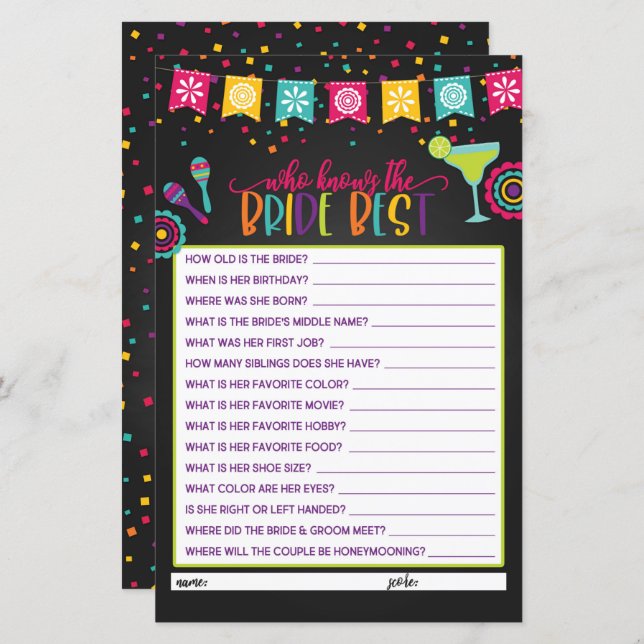 who knows the
BRIDE BEST
HOW OLD IS THE BRIDE?
WHEN IS HER BIRTHDAY?
WHERE WAS SHE BORN?
WHAT IS THE BRIDE'S MIDDLE NAME?
WHAT WAS HER FIRST JOB?
HOW MANY SIBLINGS DOES SHE HAVE?
WHAT IS HER FAVORITE COLOR?
WHAT IS HER FAVORITE MOVIE?
WHAT IS HER FAVORITE HOBBY?
WHAT IS HER FAVORITE FOOD?
WHAT IS HER SHOE SIZE?
WHAT COLOR ARE HER EYES?
IS SHE RIGHT OR LEFT HANDED?
WHERE DID THE BRIDE & GROOM MEET?
WHERE WILL THE COUPLE BE HONEYMOONING?
name: score: